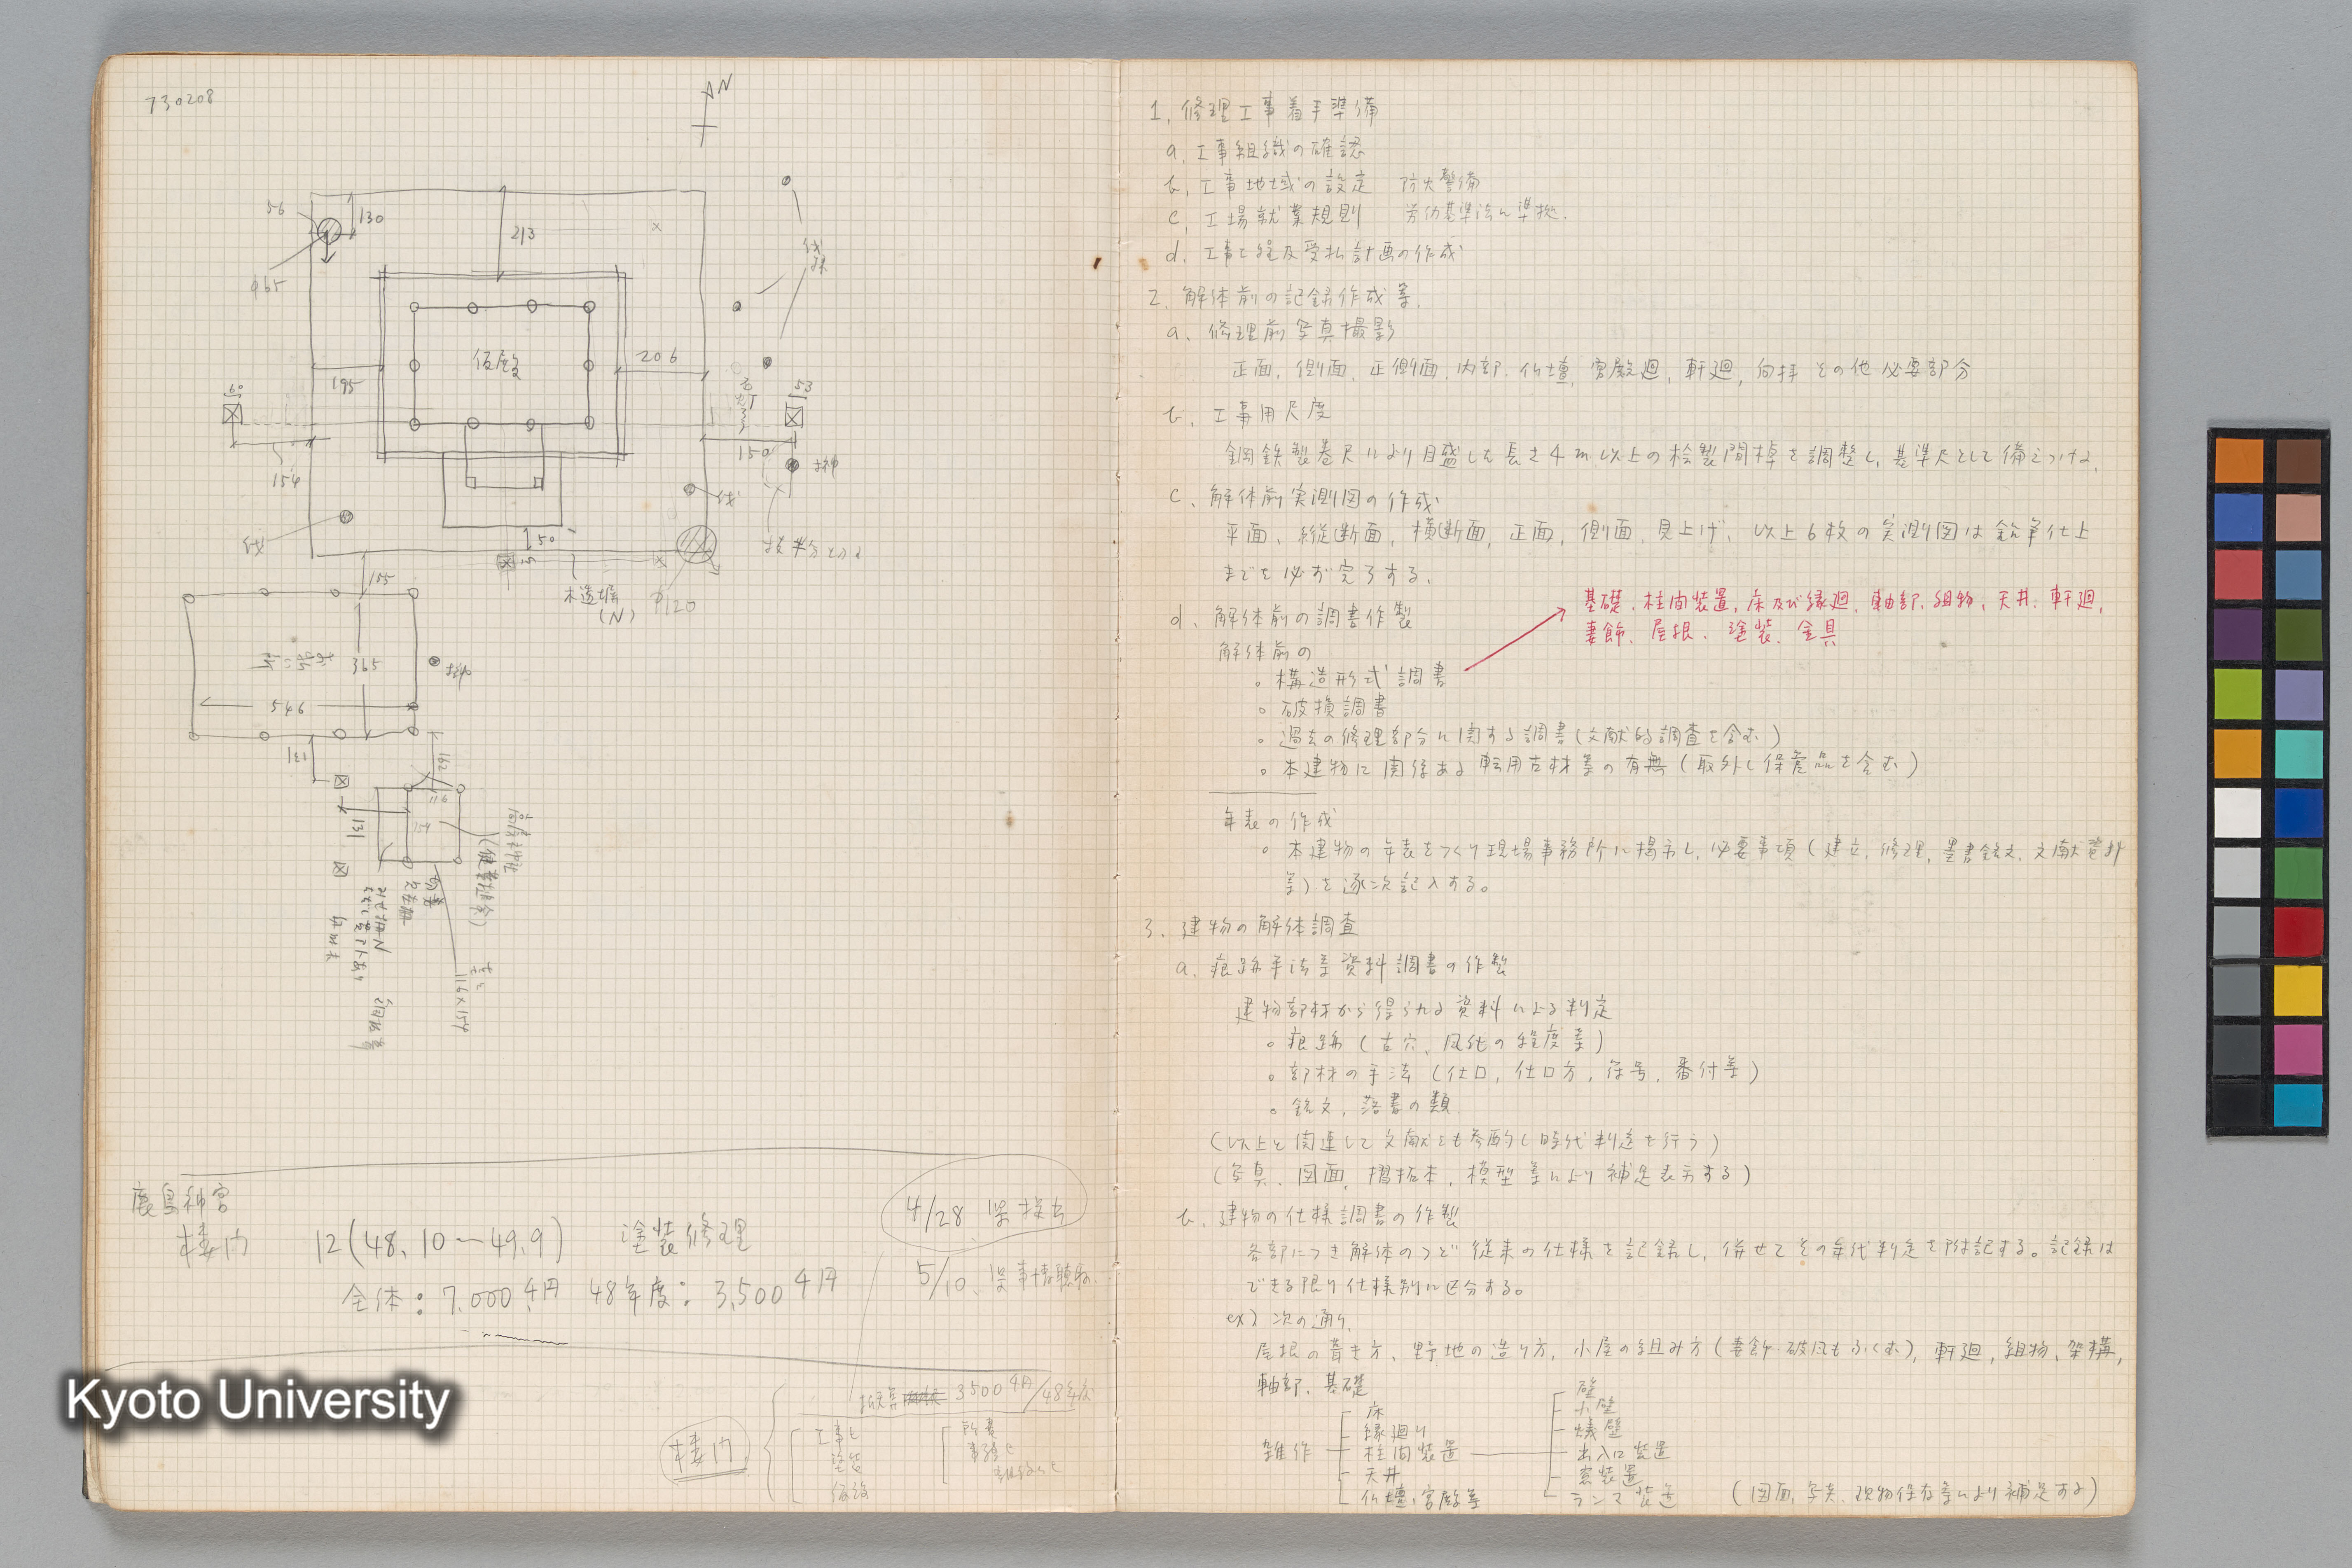 730208
N
56
130
213
φ65
伐
株
仮殿
195
206
60
53
154
150
榊
伐
伐
50
木造塀
(N)
φ120
155
365
546
榊
131
162
116
154
131
116×154
鹿島神宮
楼門 12(48.10〜49.9) 塗装修理
全体: 7,000千円 48年度: 3,500千円
4/28
5/10
3500千円/48年度
楼門
工事費
塗装
仮設
1. 修理工事着手準備
a. 工事組織の確認
b. 工事地域の設定 防火警備
c. 工場就業規則 労仂基準法に準拠.
d. 工事工程及受払計画の作成
2. 解体前の記録作成等.
a. 修理前写真撮影
正面, 側面, 正側面, 内部, 仏壇, 宮殿廻, 軒廻, 向拝 その他必要部分
b. 工事用尺度
鋼鉄製巻尺により目盛した長さ4m以上の桧製間棹を調整し, 基準尺として備えつける.
c. 解体前実測図の作成
平面, 縦断面, 横断面, 正面, 側面, 見上げ, 以上6枚の実測図は鉛筆仕上
までを必ず完了する.
d. 解体前の調書作製
基礎, 柱間装置, 床及び縁廻, 軸部, 組物, 天井, 軒廻,
妻飾, 屋根, 塗装, 金具
解体前の
○ 構造形式調書
○ 破損調書
○ 過去の修理部分に関する調書(文献的調査を含む)
○ 本建物に関係ある転用古材等の有無(取外し保管品を含む)
年表の作成
○ 本建物の年表をつくり現場事務所に掲示し, 必要事項(建立, 修理, 墨書銘文, 文献資料
等)を逐次記入する。
3. 建物の解体調査
a. 痕跡手法等資料調書の作製
建物部材から得られる資料による判定
○ 痕跡(古穴, 風化の程度等)
○ 部材の手法(仕口, 仕口方, 符号, 番付等)
○ 銘文, 落書の類
(以上と関連して文献とも参酌し時代判定を行う)
(写真, 図面, 摺拓本, 模型等により補足表示する)
b. 建物の仕様調書の作製
各部につき解体のつど従来の仕様を記録し, 併せてその年代判定を附記する。記録は
できる限り仕様別に区分する。
ex) 次の通り.
屋根の葺き方, 野地の造り方, 小屋の組み方(妻飾破風もふくむ), 軒廻, 組物, 架構,
軸部, 基礎
雑作
床
縁廻り
柱間装置
天井
仏壇, 宮殿等
壁
小壁
蟻壁
出入口装置
窓装置
ランマ装置
(図面, 写真, 現物保存等により補足する)
Kyoto University